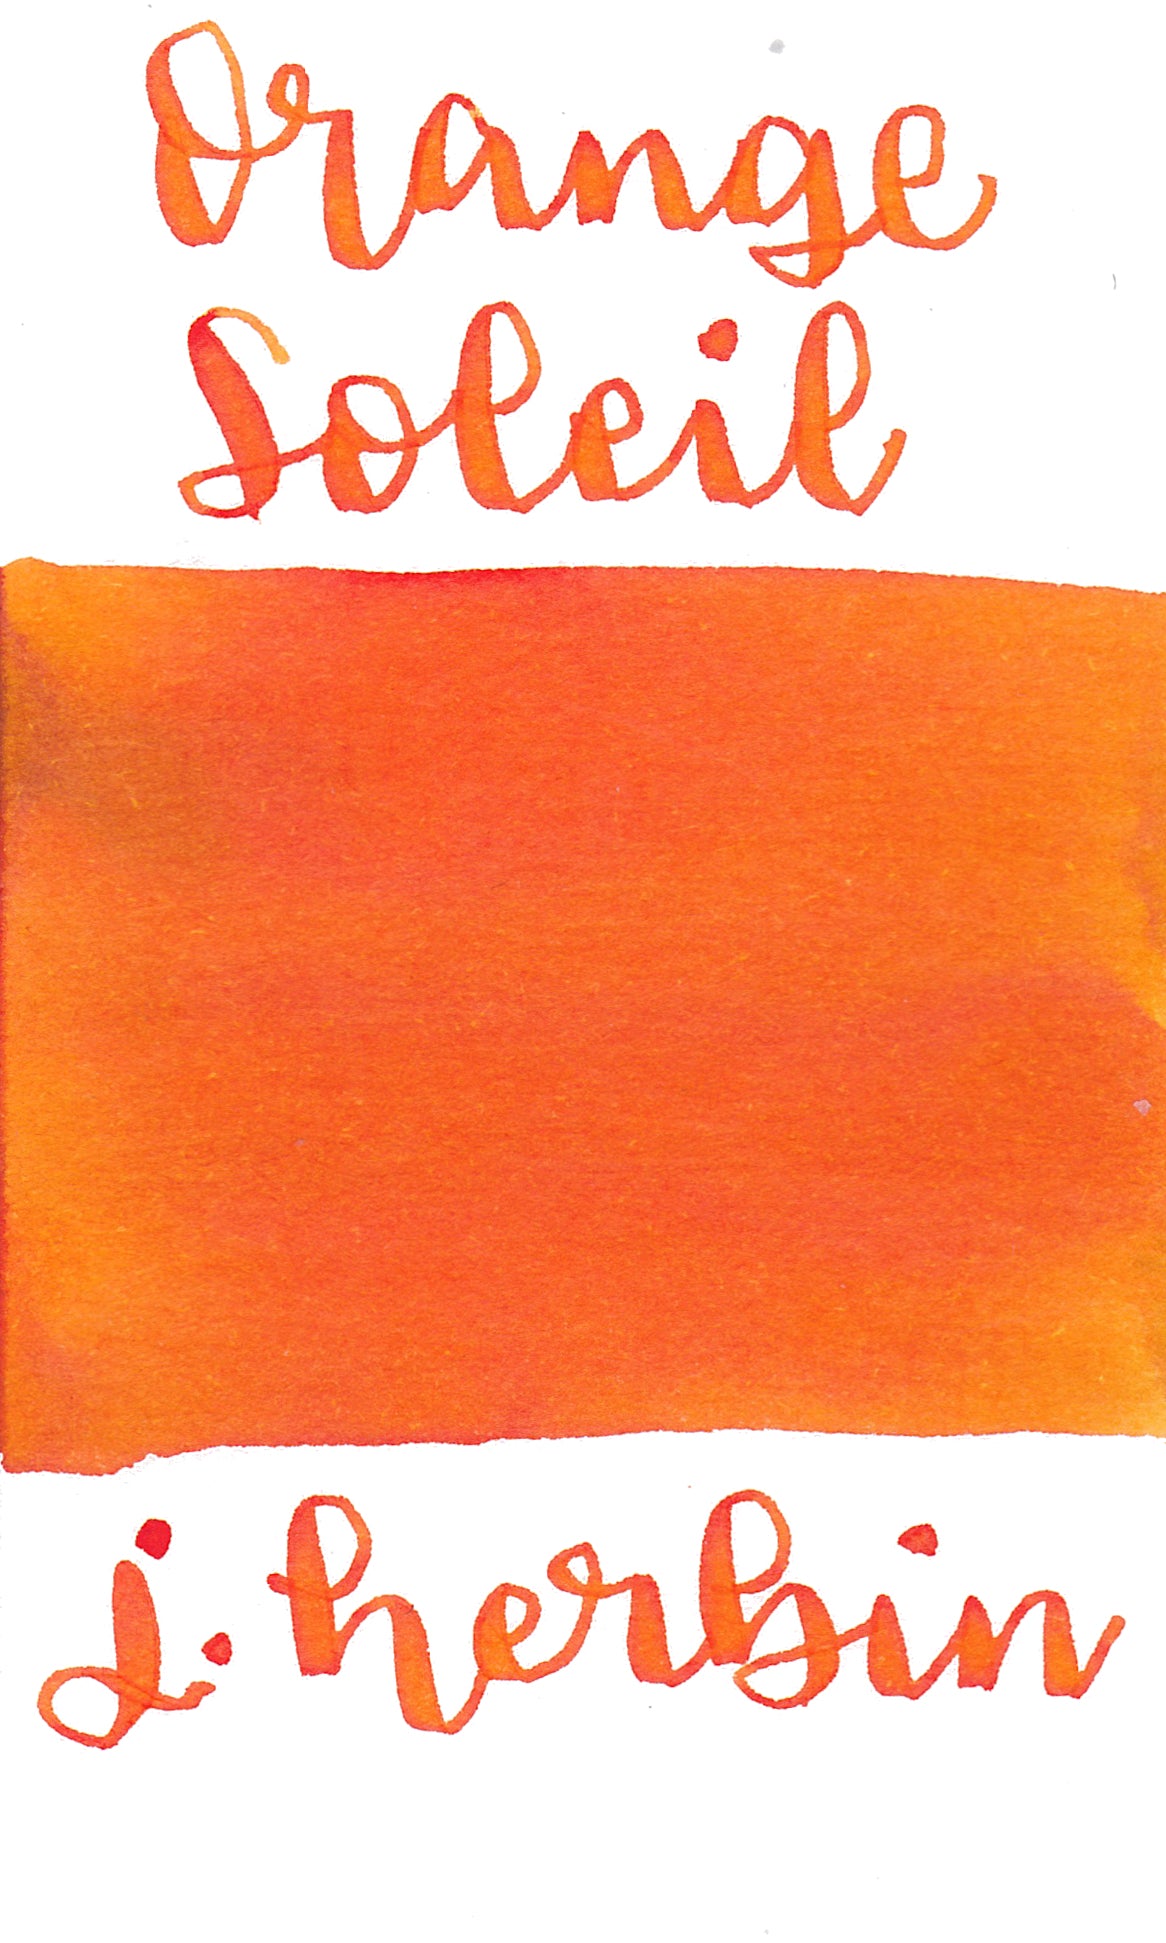 Orange
Soleil
j. herbin